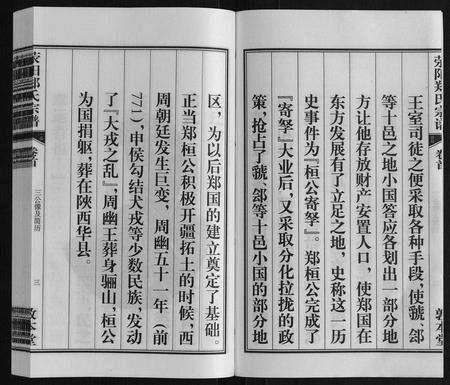 荥阳郑氏宗谱
卷首
敦本堂
王室司徒之便采取各种手段，使虢、郐
等十邑之地小国答应各划出一部分地
方让他存放财产安置人口，使郑国在
东方发展有了立足之地，史称这一历
史事件为『桓公寄孥』。郑桓公完成了
『寄孥』大业后，又采取分化拉拢的政
策，抢占了虢、郐等十邑小国的部分地
区，为以后郑国的建立奠定了基础。
正当郑桓公积极开疆拓上的时候，西
周朝廷发生巨变，周幽五十一年（前
771），申侯勾结犬戎等少数民族，发动
了『大戎之乱』，周幽王葬身骊山，桓公
为国捐躯，葬在陕西华县。
卷首
三公像及简历
三
敦本堂